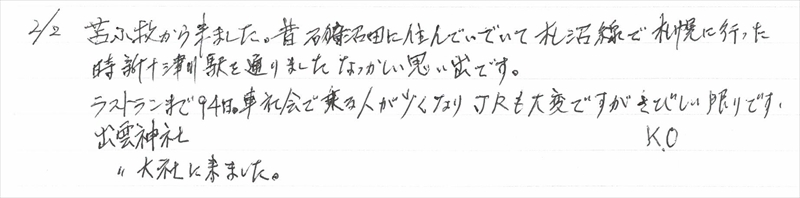 2/2 苫小牧から来ました。昔 石狩沼田に住んでいていて札沼線で札幌に行った
時新十津川駅を通りましたなつかしい思い出です。
ラストランまで94日。車社会で乗る人が少くなりJRも大変ですがさびしい限りです.
出雲神社 K.O
〃 大社に来ました。